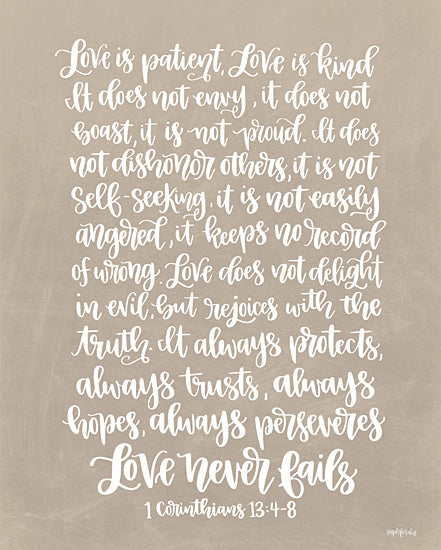 Love is patient, Love is kind
It does not envy, it does not
boast, it is not proud. It does
not dishonor others, it is not
self-seeking, it is not easily
angered, it keeps no record
of wrong. Love does not delight
in evil, but rejoices with the
truth. It always protects,
always trusts, always
hopes, always perseveres
Love never fails
1 Corinthians 13:4-8